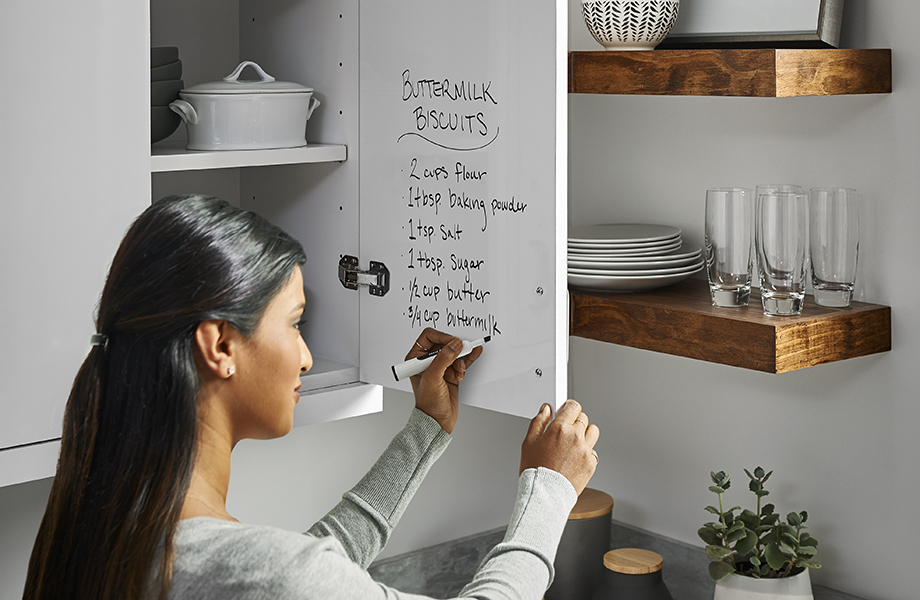 BUTTERMILK
BISCUITS
· 2 cups flour
· 1 tbsp. baking powder
· 1 tsp. salt
· 1 tbsp. sugar
· 1/2 cup butter
· 3/4 cup buttermilk